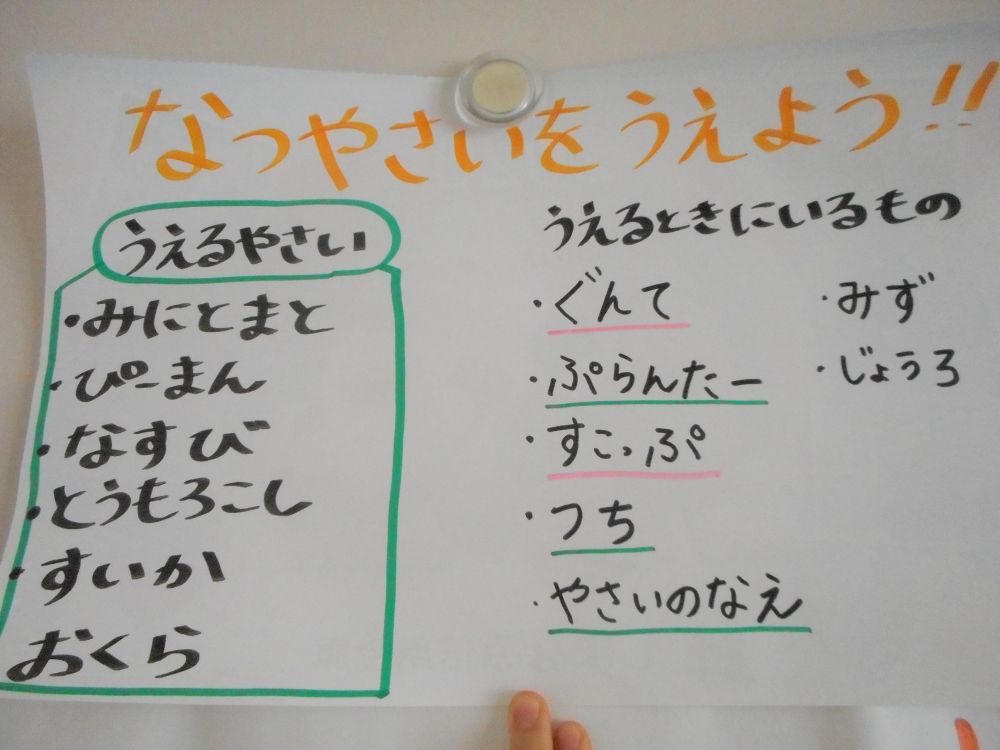 なつやさいをうえよう!!
うえるやさい
・みにとまと
・ぴーまん
・なすび
・とうもろこし
・すいか
おくら
うえるときにいるもの
・ぐんて
・ぷらんたー
・すこっぷ
・つち
・やさいのなえ
・みず
・じょうろ